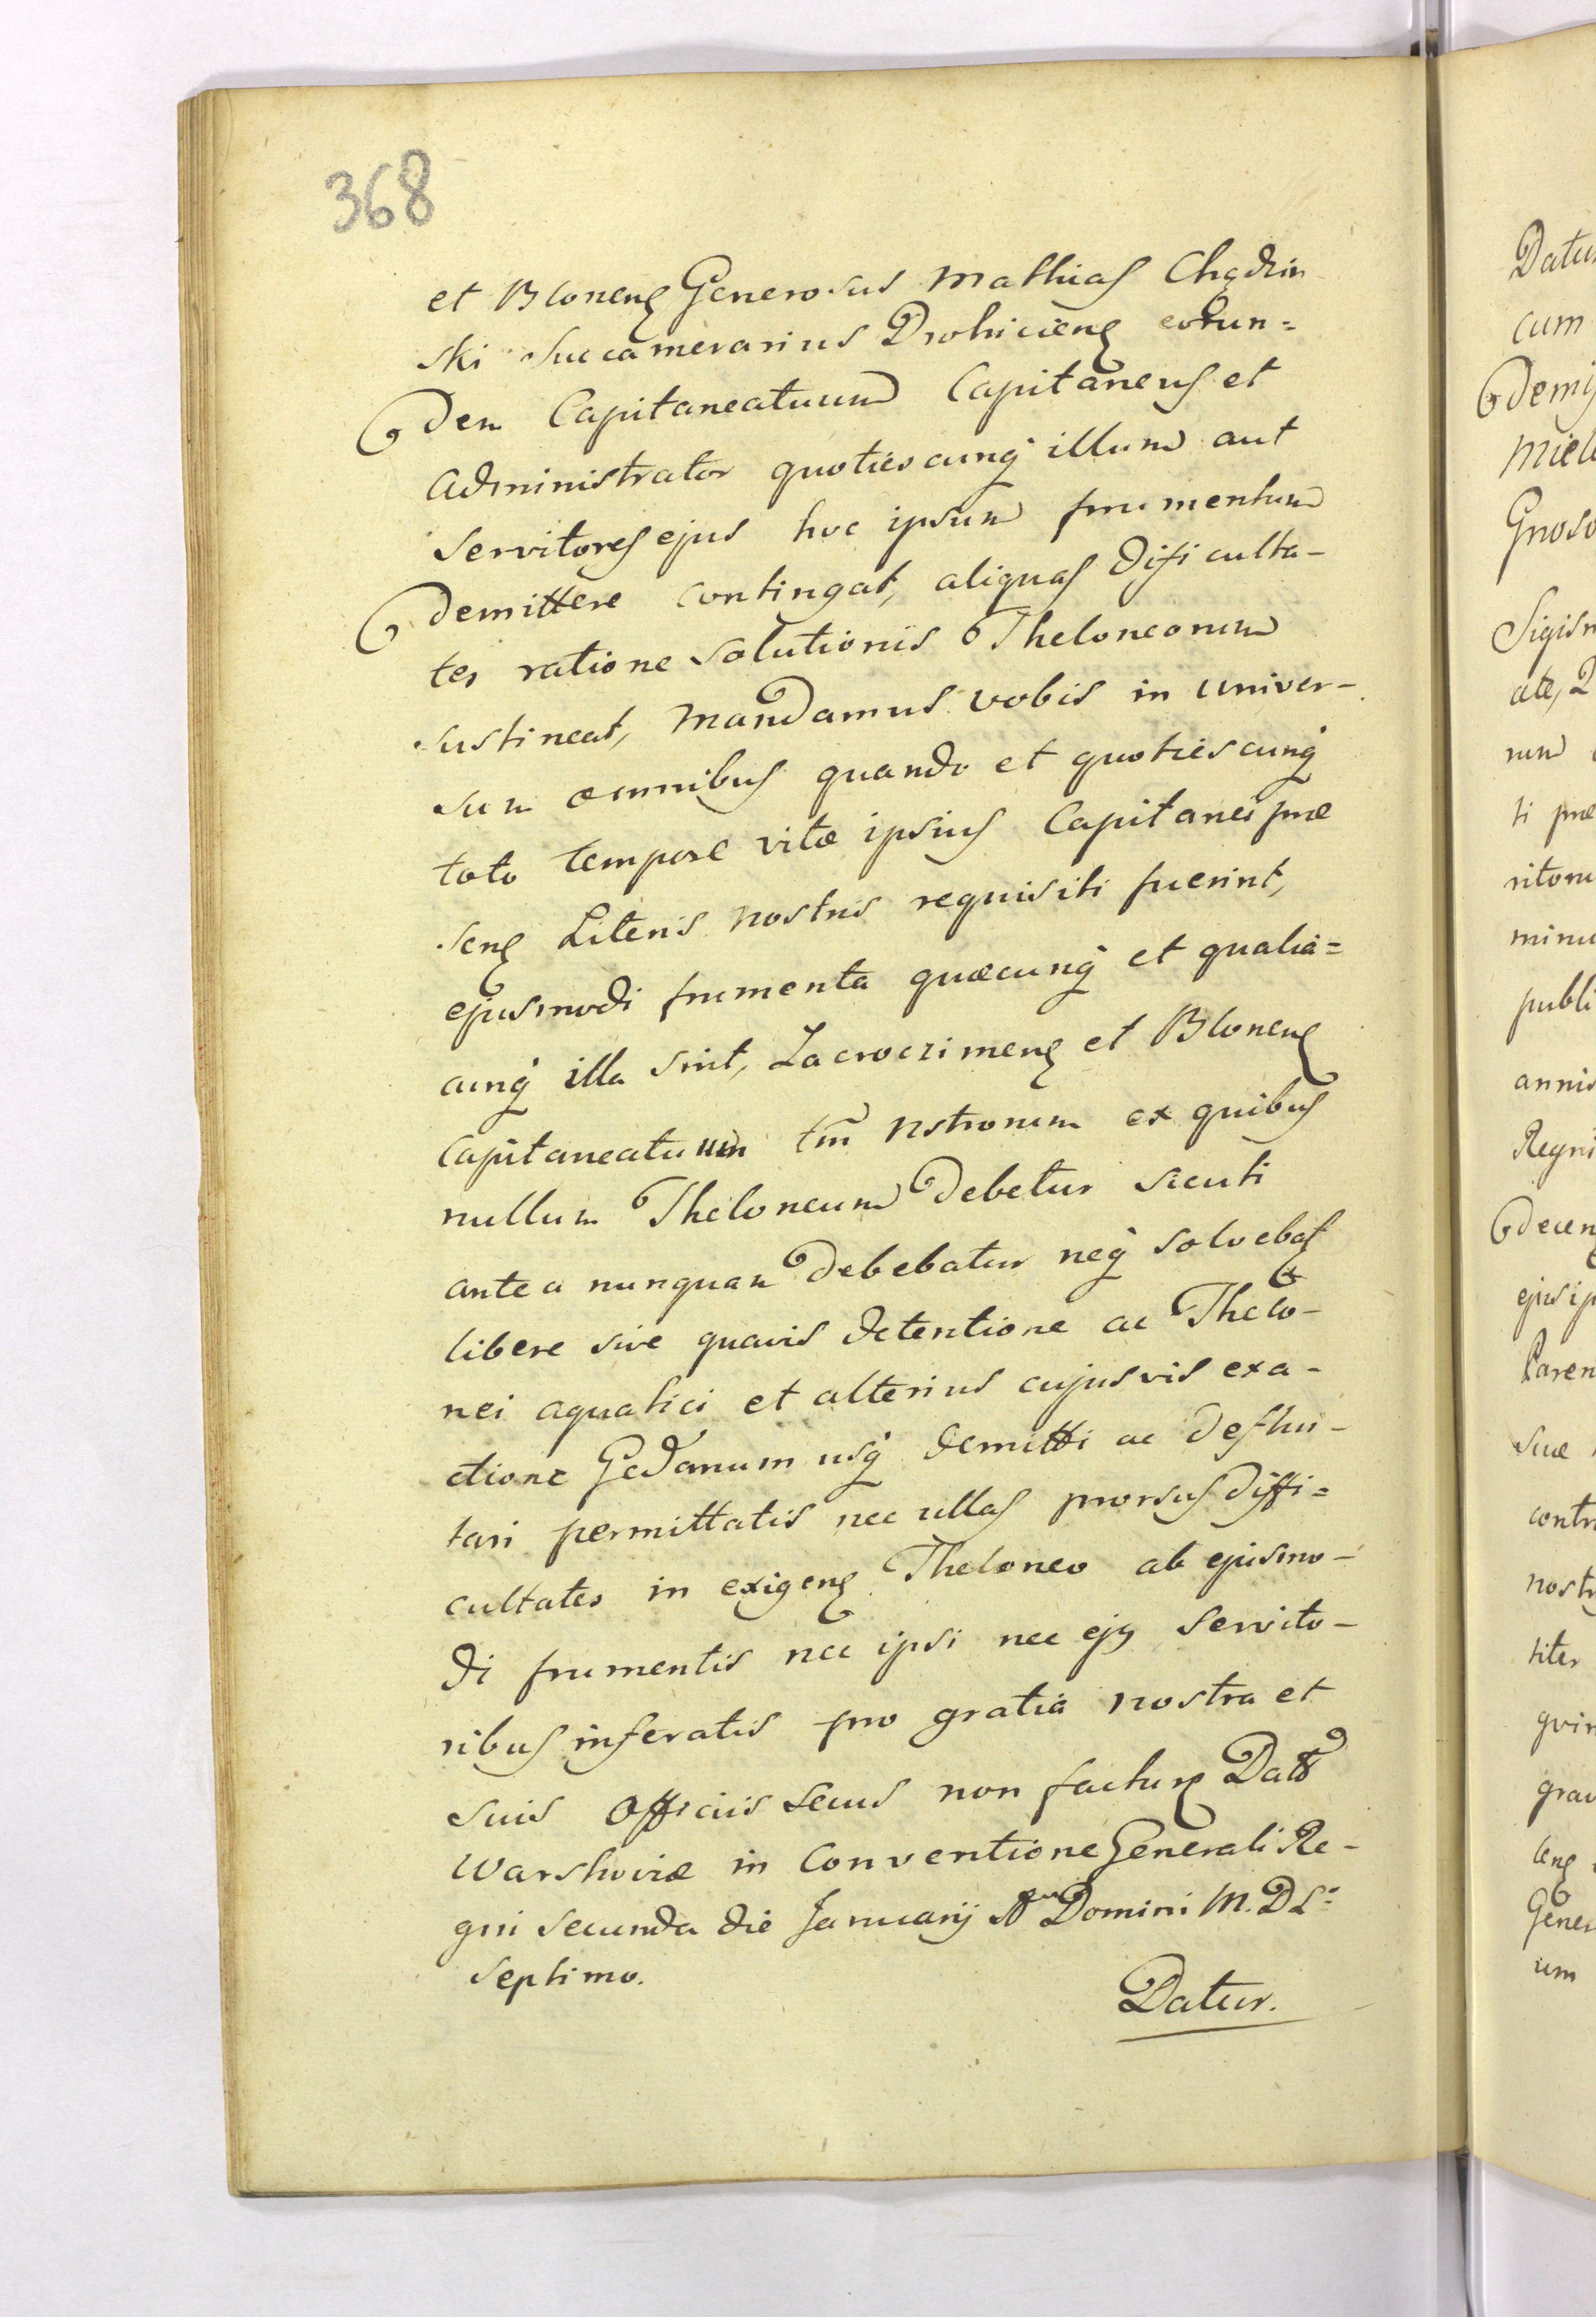 368
et Bloneng Generosus Mathias Chądzin
ski Succamerarius Drohicieng eorun=
dem Capitaneatuum Capitaneus et
Administrator quotiescunq illum aut
Servitores ejus hoc ipsum frumentum
demittere contingat, aliquas dificulta-
tes ratione solutionis Theloneorum
sustineat, Mandamus vobis in univer-
sum omnibus quando et quotiescunq
toto tempore vitæ ipsius Capitanei præ
seng Literis nostris requisiti fuerint,
ejusmodi frumenta quæcunq et qualia=
cunq illa sint, Zacroczimeng et Bloneng
Capitaneatuum tm̃ nstrorum ex quibus
nullum Theloneum debetur sicuti
antea nunquam debebatur neq solvebat
libere sive quavis detentione ac Thelo-
nei aquatici et alterius cujusvis exa-
ctione Gedanum usq demitti ac deflui-
tari permittatis nec ullas prorsus diffi=
cultates in exigeng Theloneo ab ejusmo-
di frumentis nec ipsi nec ejus servito-
ribus inferatis pro gratia nostra et
suis Officiis secus non factur Datt
Warshoviæ in Conventione Generali Re-
gni secunda die Januarij Domini M.DL
septimo.
Datur.
cum
ti præ
publi
Regni
Suæ
um